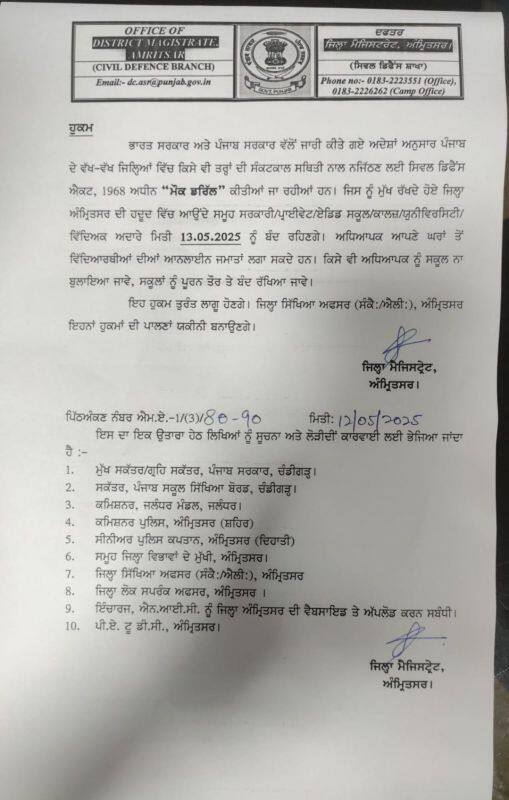 OFFICE OF
DISTRICT MAGISTRATE,
AMRITSAR
(CIVIL DEFENCE BRANCH)
Email:- dc.asr@punjab.gov.in
GOVT. PUNJAB
ਦਫਤਰ
ਜ਼ਿਲ੍ਹਾ ਮੈਜਿਸਟਰੇਟ, ਅੰਮ੍ਰਿਤਸਰ।
(ਸਿਵਲ ਡਿਫੈਂਸ ਸ਼ਾਖਾ)
Phone no:- 0183-2223551 (Office),
0183-2226262 (Camp Office)
ਹੁਕਮ
ਭਾਰਤ ਸਰਕਾਰ ਅਤੇ ਪੰਜਾਬ ਸਰਕਾਰ ਵੱਲੋਂ ਜਾਰੀ ਕੀਤੇ ਗਏ ਅਦੇਸ਼ਾਂ ਅਨੁਸਾਰ ਪੰਜਾਬ
ਦੇ ਵੱਖ-ਵੱਖ ਜਿਲ੍ਹਿਆਂ ਵਿੱਚ ਕਿਸੇ ਵੀ ਤਰ੍ਹਾਂ ਦੀ ਸੰਕਟਕਾਲ ਸਥਿਤੀ ਨਾਲ ਨਜਿੱਠਣ ਲਈ ਸਿਵਲ ਡਿਫੈਂਸ
ਐਕਟ, 1968 ਅਧੀਨ "ਮੌਕ ਡਰਿੱਲ" ਕੀਤੀਆਂ ਜਾ ਰਹੀਆਂ ਹਨ। ਜਿਸ ਨੂੰ ਮੁੱਖ ਰੱਖਦੇ ਹੋਏ ਜਿਲ੍ਹਾ
ਅੰਮ੍ਰਿਤਸਰ ਦੀ ਹਦੂਦ ਵਿੱਚ ਆਉਂਦੇ ਸਮੂਹ ਸਰਕਾਰੀ/ਪ੍ਰਾਈਵੇਟ/ਏਡਿਡ ਸਕੂਲ/ਕਾਲਜ/ਯੂਨੀਵਰਸਿਟੀ/
ਵਿੱਦਿਅਕ ਅਦਾਰੇ ਮਿਤੀ 13.05.2025 ਨੂੰ ਬੰਦ ਰਹਿਣਗੇ। ਅਧਿਆਪਕ ਆਪਣੇ ਘਰਾਂ ਤੋਂ
ਵਿੱਦਿਆਰਥੀਆਂ ਦੀਆਂ ਆਨਲਾਈਨ ਜਮਾਤਾਂ ਲਗਾ ਸਕਦੇ ਹਨ। ਕਿਸੇ ਵੀ ਅਧਿਆਪਕ ਨੂੰ ਸਕੂਲ ਨਾ
ਬੁਲਾਇਆ ਜਾਵੇ, ਸਕੂਲਾਂ ਨੂੰ ਪੂਰਨ ਤੌਰ ਤੇ ਬੰਦ ਰੱਖਿਆ ਜਾਵੇ।
ਇਹ ਹੁਕਮ ਤੁਰੰਤ ਲਾਗੂ ਹੋਣਗੇ। ਜਿਲ੍ਹਾ ਸਿੱਖਿਆ ਅਫਸਰ (ਸੰਕੈ:/ਐਲੀ:), ਅੰਮ੍ਰਿਤਸਰ
ਇਹਨਾਂ ਹੁਕਮਾਂ ਦੀ ਪਾਲਣਾਂ ਯਕੀਨੀ ਬਨਾਉਣਗੇ।
ਜ਼ਿਲ੍ਹਾ ਮੈਜਿਸਟ੍ਰੇਟ,
ਅੰਮ੍ਰਿਤਸਰ।
ਪਿੱਠਅੰਕਣ ਨੰਬਰ ਐਮ.ਏ.-1/(3)/80-90 ਮਿਤੀ: 12/05/2025
ਇਸ ਦਾ ਇਕ ਉਤਾਰਾ ਹੇਠ ਲਿਖਿਆਂ ਨੂੰ ਸੂਚਨਾ ਅਤੇ ਲੋੜੀਂਦੀ ਕਾਰਵਾਈ ਲਈ ਭੇਜਿਆ ਜਾਂਦਾ
ਹੈ :-
1. ਮੁੱਖ ਸਕੱਤਰ/ਗ੍ਰਹਿ ਸਕੱਤਰ, ਪੰਜਾਬ ਸਰਕਾਰ, ਚੰਡੀਗੜ੍ਹ।
2. ਸਕੱਤਰ, ਪੰਜਾਬ ਸਕੂਲ ਸਿੱਖਿਆ ਬੋਰਡ, ਚੰਡੀਗੜ੍ਹ।
3. ਕਮਿਸ਼ਨਰ, ਜਲੰਧਰ ਮੰਡਲ, ਜਲੰਧਰ।
4. ਕਮਿਸ਼ਨਰ ਪੁਲਿਸ, ਅੰਮ੍ਰਿਤਸਰ (ਸ਼ਹਿਰ)
5. ਸੀਨੀਅਰ ਪੁਲਿਸ ਕਪਤਾਨ, ਅੰਮ੍ਰਿਤਸਰ (ਦਿਹਾਤੀ)
6. ਸਮੂਹ ਜਿਲ੍ਹਾ ਵਿਭਾਵਾਂ ਦੇ ਮੁੱਖੀ, ਅੰਮ੍ਰਿਤਸਰ।
7. ਜ਼ਿਲ੍ਹਾ ਸਿੱਖਿਆ ਅਫਸਰ (ਸੰਕੈ:/ਐਲੀ:), ਅੰਮ੍ਰਿਤਸਰ
8. ਜ਼ਿਲ੍ਹਾ ਲੋਕ ਸਪਰੰਕ ਅਫਸਰ, ਅੰਮ੍ਰਿਤਸਰ ।
9. ਇੰਚਾਰਜ, ਐਨ.ਆਈ.ਸੀ. ਨੂੰ ਜ਼ਿਲ੍ਹਾ ਅੰਮ੍ਰਿਤਸਰ ਦੀ ਵੈਬਸਾਇਡ ਤੇ ਅੱਪਲੋਡ ਕਰਨ ਸਬੰਧੀ।
10. ਪੀ.ਏ. ਟੂ ਡੀ.ਸੀ., ਅੰਮ੍ਰਿਤਸਰ।
ਜ਼ਿਲ੍ਹਾ ਮੈਜਿਸਟ੍ਰੇਟ,
ਅੰਮ੍ਰਿਤਸਰ।